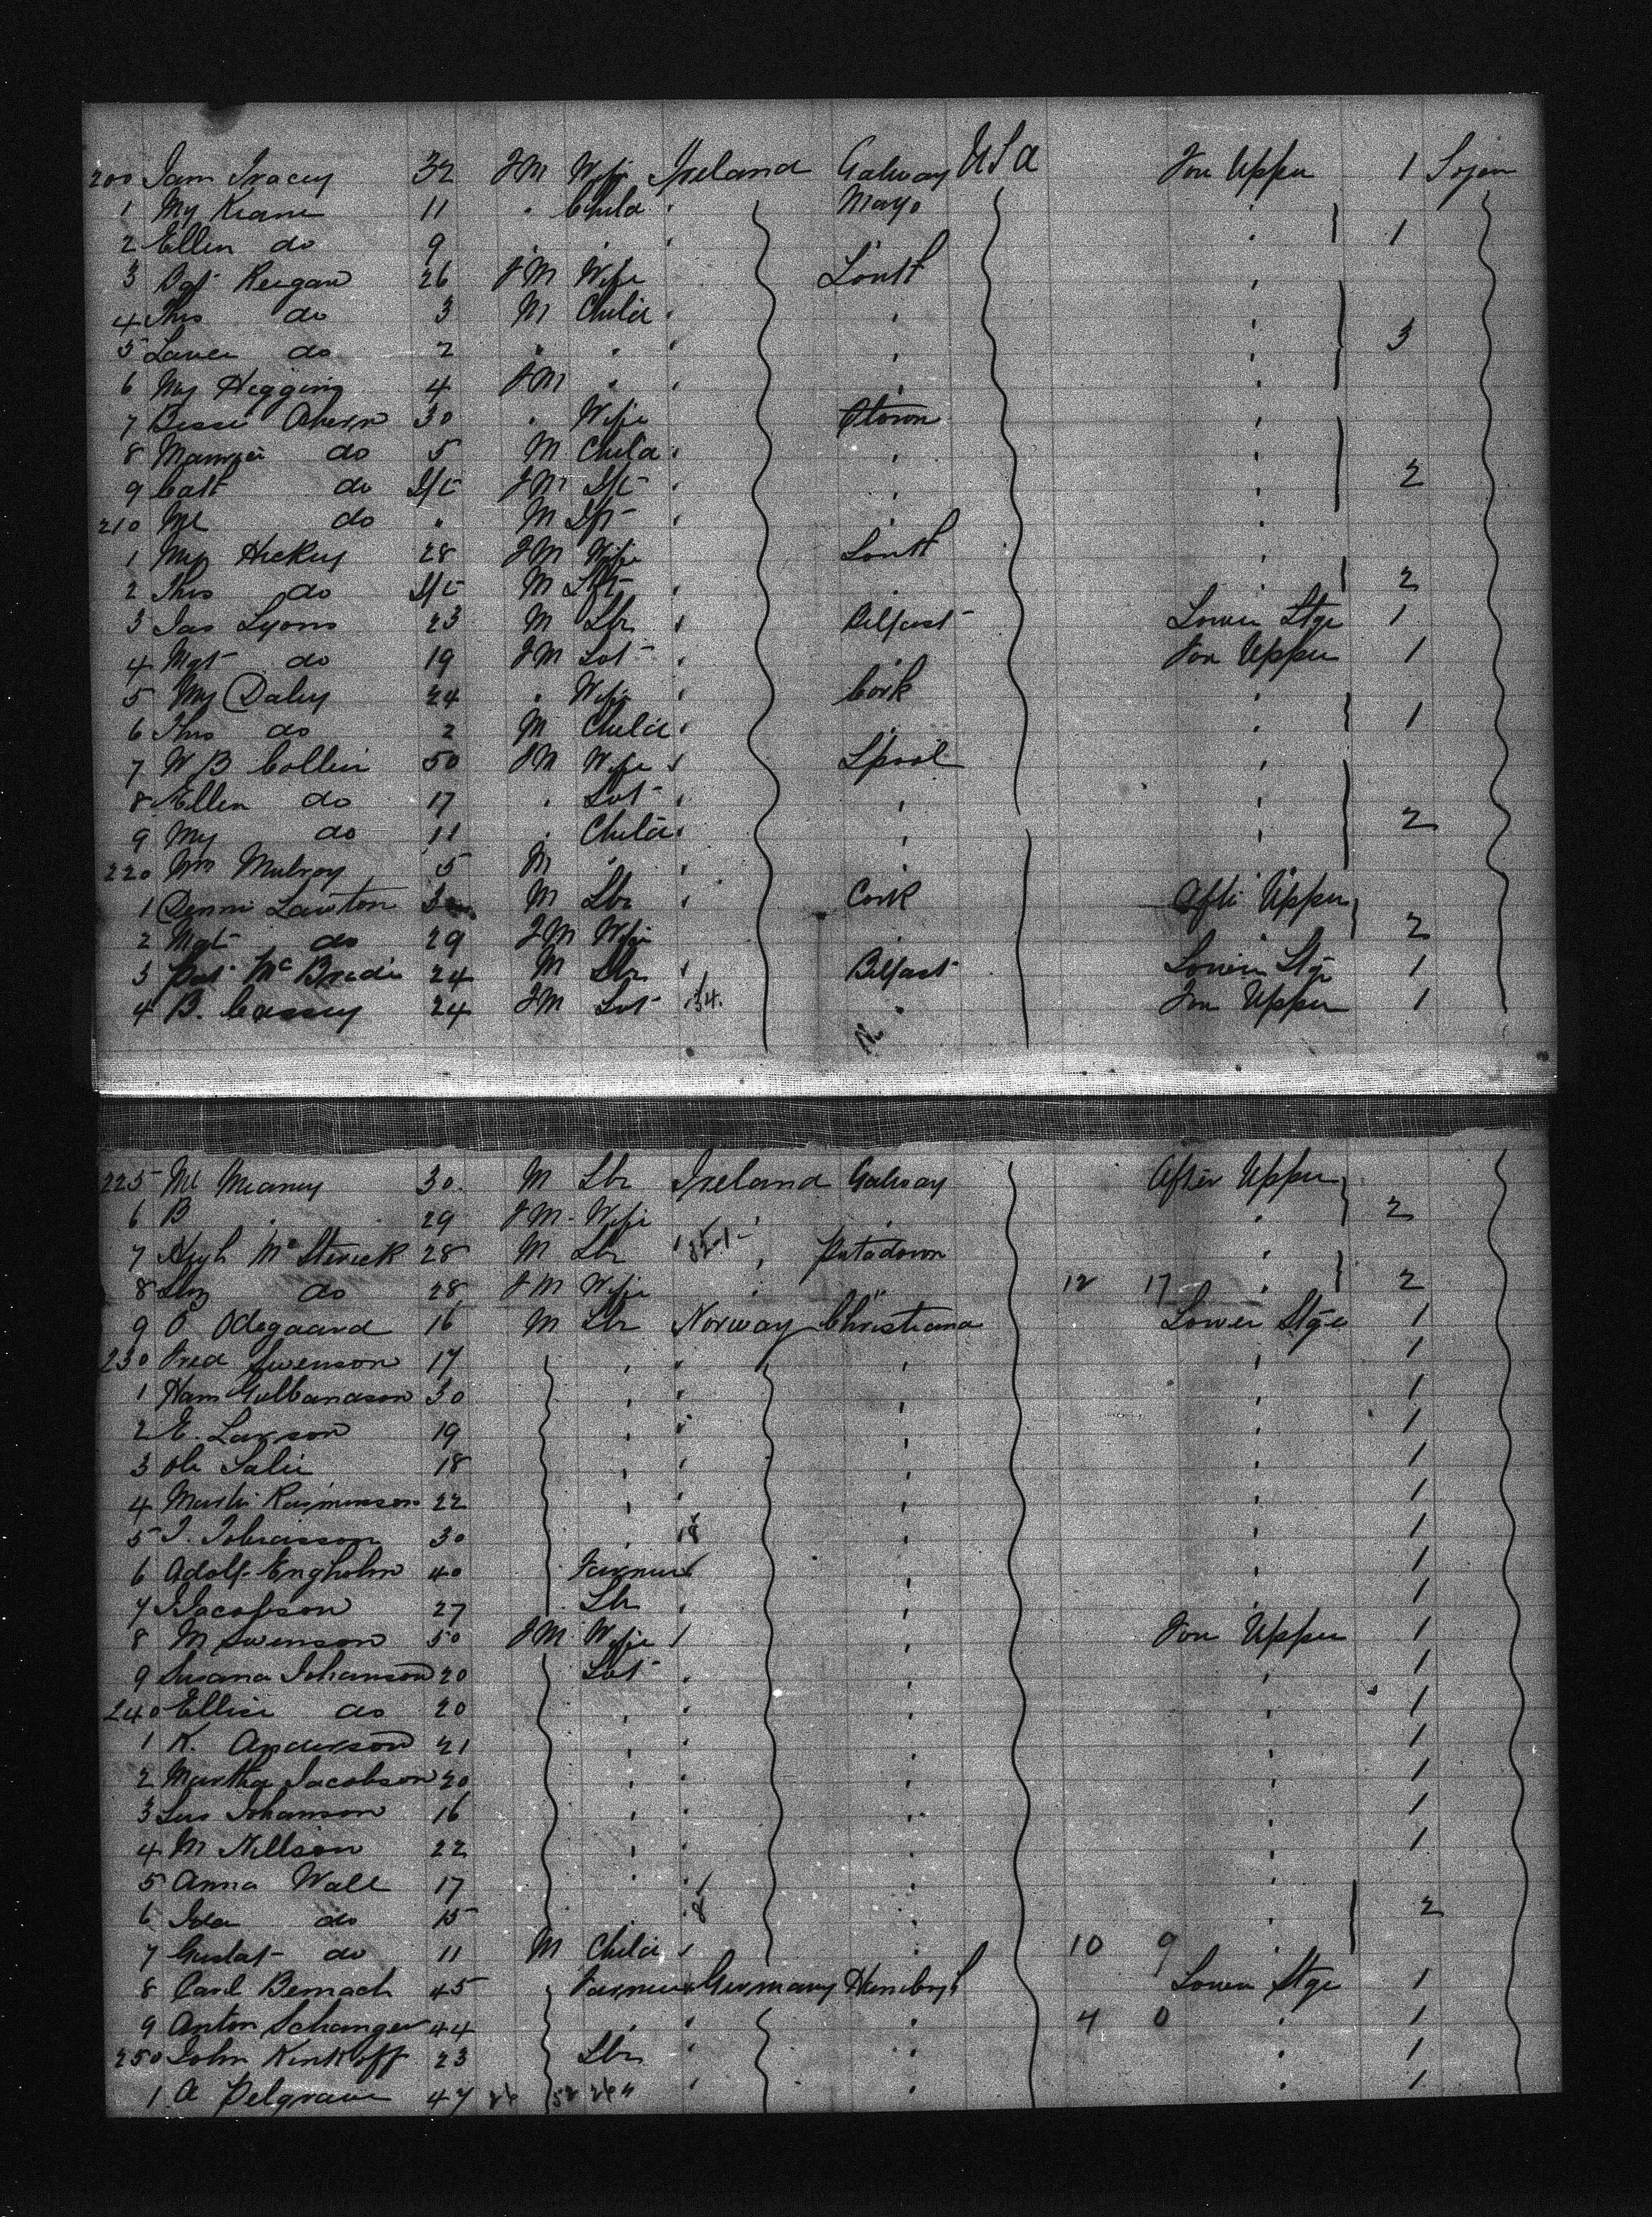 200 Jam Tracey 32 FM Wife Ireland Galway USA For Upper 1 Sojon
1 My Keane 11 " Child " Mayo "
2 Ellen do 9 " " " " " 1
3 Bgt Keegan 26 FM Wife Louth "
4 Thos do 3 M Child " " "
5 do 2 " " " " " 3
6 My Higgins 4 FM " " " "
7 Bessie Ahern 30 " Wife "
8 do 5 M Child " " "
9 Cath do Inft FM Inft " " " 2
210 Ml do " M Inft " "
1 My Hickey 28 FM Wife Louth "
2 Thos do Inft M Inft " " 2
3 Jas Lyons 23 M Lbr " Belfast Lower Stge 1
4 Mgt do 19 FM Svt " " For Upper 1
5 My Daley 24 " Wife " Cork "
6 Thos do 2 M Child " " " 1
7 W B Collin 50 FM Wife " Lpool "
8 Ellen do 17 " Svt " " "
9 My do 11 " Child " " " 2
220 Wm Mulroy 5 M " " " "
1 Denni Lawton M Lbr " Cork Aftr Upper
2 Mgt do 29 FM Wife " 2
3 Pat McBride 24 M Lbr " Belfast Lower Stge 1
4 B. Cassey 24 FM Svt 34. " For Upper 1
225 Ml Meaney 30. M Lbr Ireland Galway After Upper
6 B " 29 FM Wife " " " 2
7 Hugh 28 M Lbr " " Portadown "
8 do 28 FM Wife " " 12 17 " 2
9 O Odegaard 16 M Lbr Norway Christiana Lower Stge 1
230 Fred Swenson 17 " " " " 1
1 Ham Gulbandson 30 " " " " 1
2 E. Larson 19 " " " " 1
3 Ole Salie 18 " " " " 1
4 Martin Rasmusson 22 " " " " 1
5 T. Tobiasson 30 " " " 1
6 Adolf Engholm 40 Farmer " " 1
7 Jacobson 27 Lbr " " " 1
8 M Swenson 50 FM Wife " " For Upper 1
9 Susana Johanson 20 Svt " " " 1
240 Ellise do 20 " " " " 1
1 K. Anderson 21 " " " " 1
2 Martha Jacobson 20 " " " " 1
3 Johanson 16 " " " " 1
4 M Nillson 22 " " " " 1
5 Anna Wall 17 " " " "
6 Ida do 15 " " " 2
7 Gustaf do 11 M Child " " 10 9 "
8 Carl Bernach 45 " Farmer Germany Hamburgh Lower Stge 1
9 Anton Schanger 44 " " " 4 0 " 1
250 John Kinkoff 23 Lbr " " " 1
1 A Pelgraue 47 26 52 26 " " " " 1